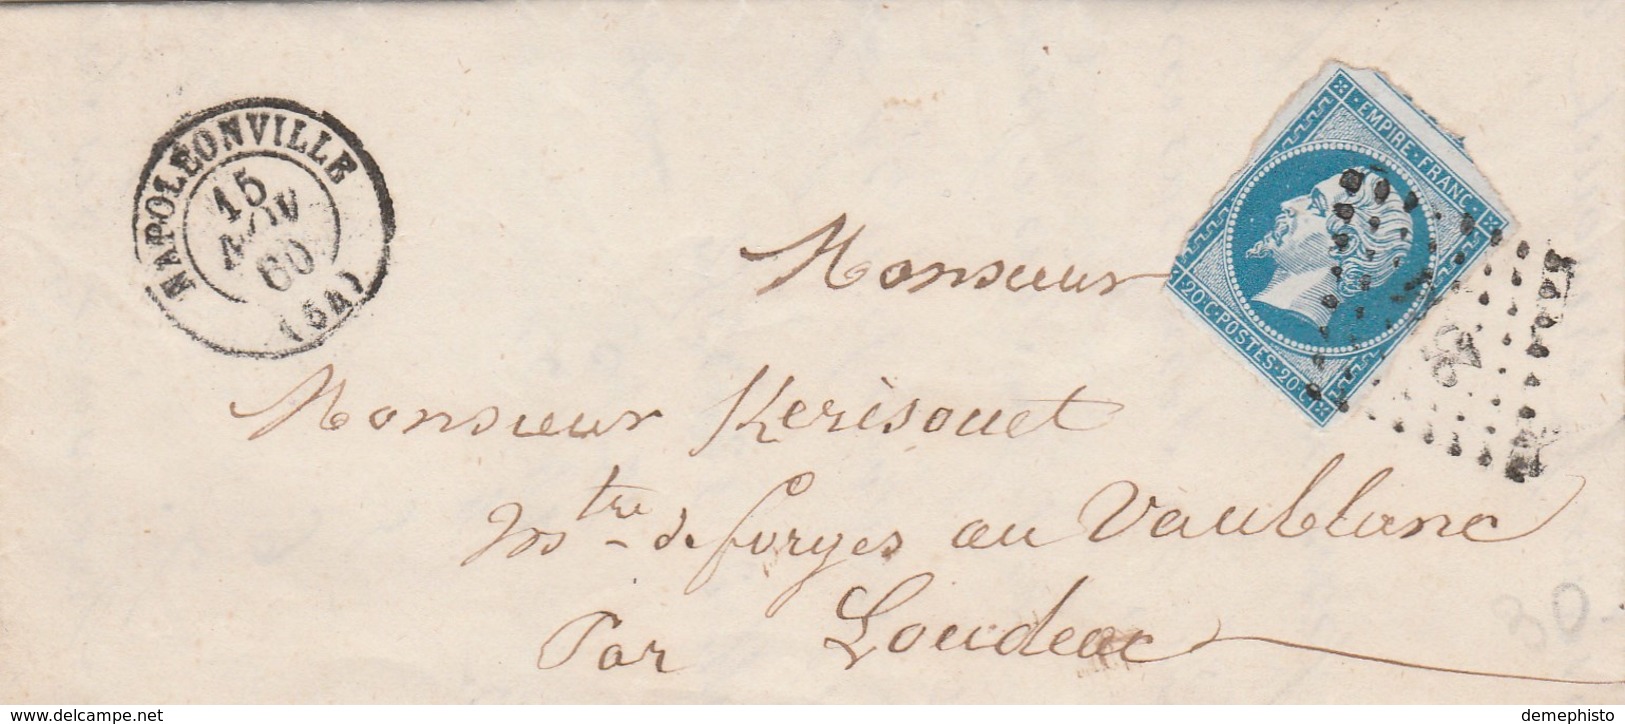 NAPOLÉONVILLE
15
NOV
60
(54)
EMPIRE · FRANC ·
· 20 · C · POSTES · 20 · C ·
Monsieur
Monsieur Kerisouet
Mtre de forges au Vaublanc
Par Loudeac
30 -
www.delcampe.net
demephisto